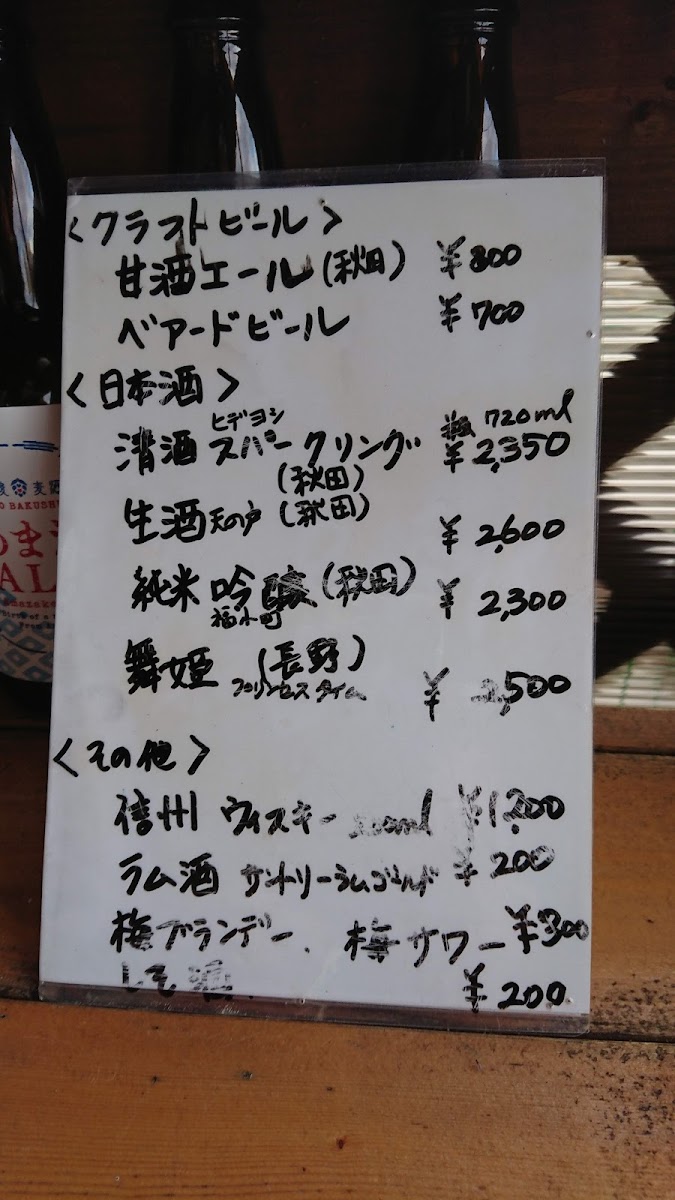 <クラフトビール>
甘酒エール(秋田) ¥800
ベアードビール ¥700
<日本酒>
ヒデヨシ 瓶 720ml
清酒 スパークリング ¥2,350
(秋田)
生酒 天の戸 (秋田) ¥2,600
純米 吟醸 (秋田) ¥2,300
福小町
舞姫 (長野)
プリンセスタイム ,500
<その他>
信州 ウィスキー ml ¥1,200
ラム酒 サントリーラムゴールド ¥200
梅ブランデー、梅サワー ¥300
しそ酒 ¥200
麦
BAKUSHU
AL